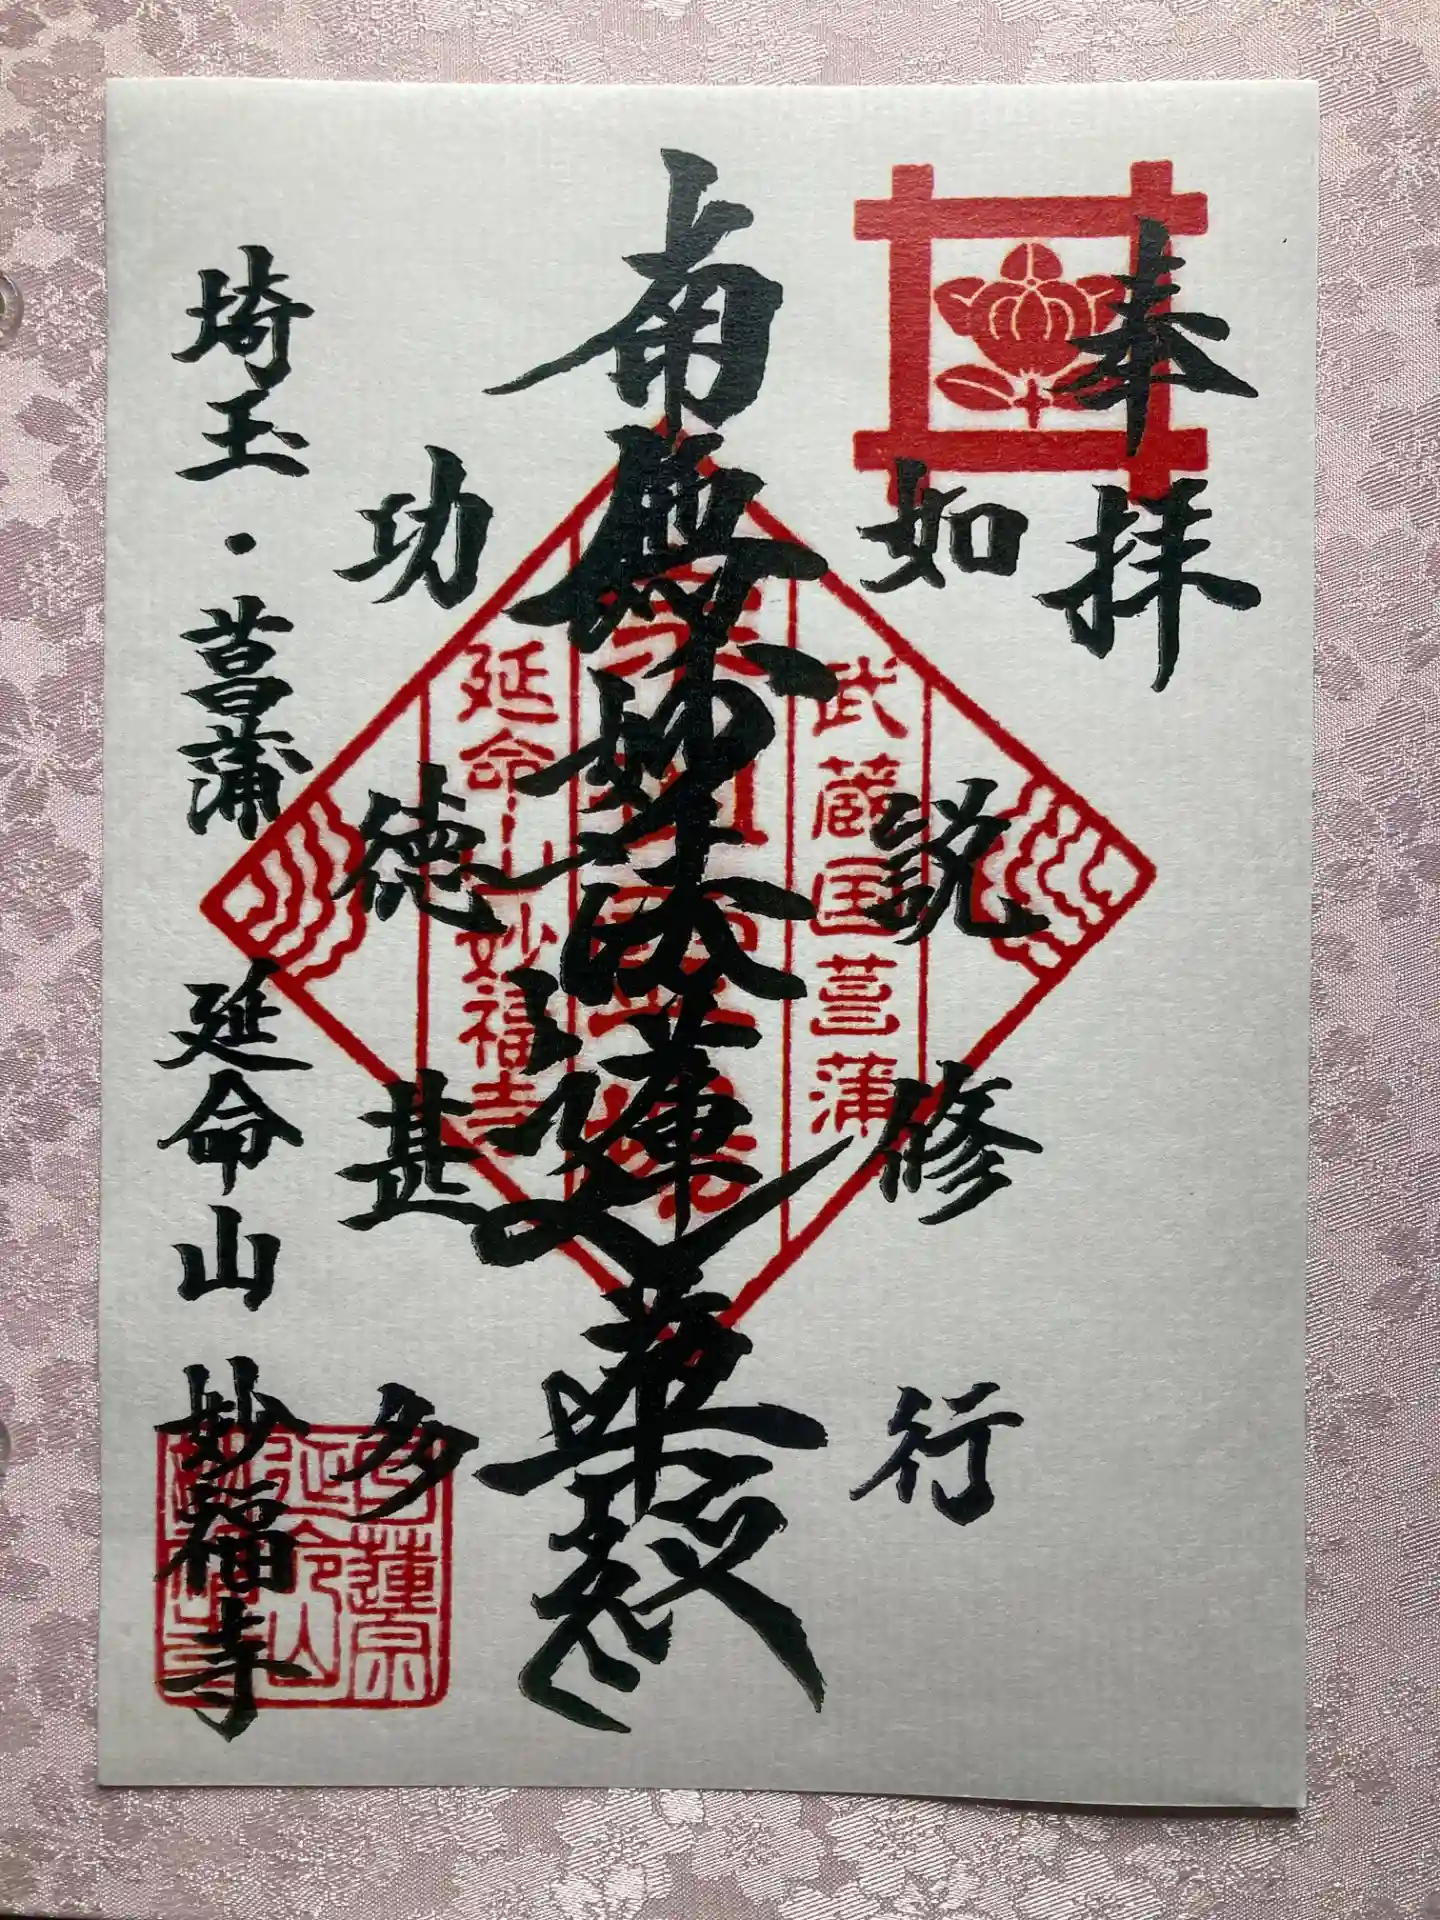 奉拝
如説修行
南無妙法蓮華経
功徳甚多
埼玉・菖蒲 延命山 妙福寺
武蔵国菖蒲
延命山妙福寺
日蓮宗
延命山
妙福寺